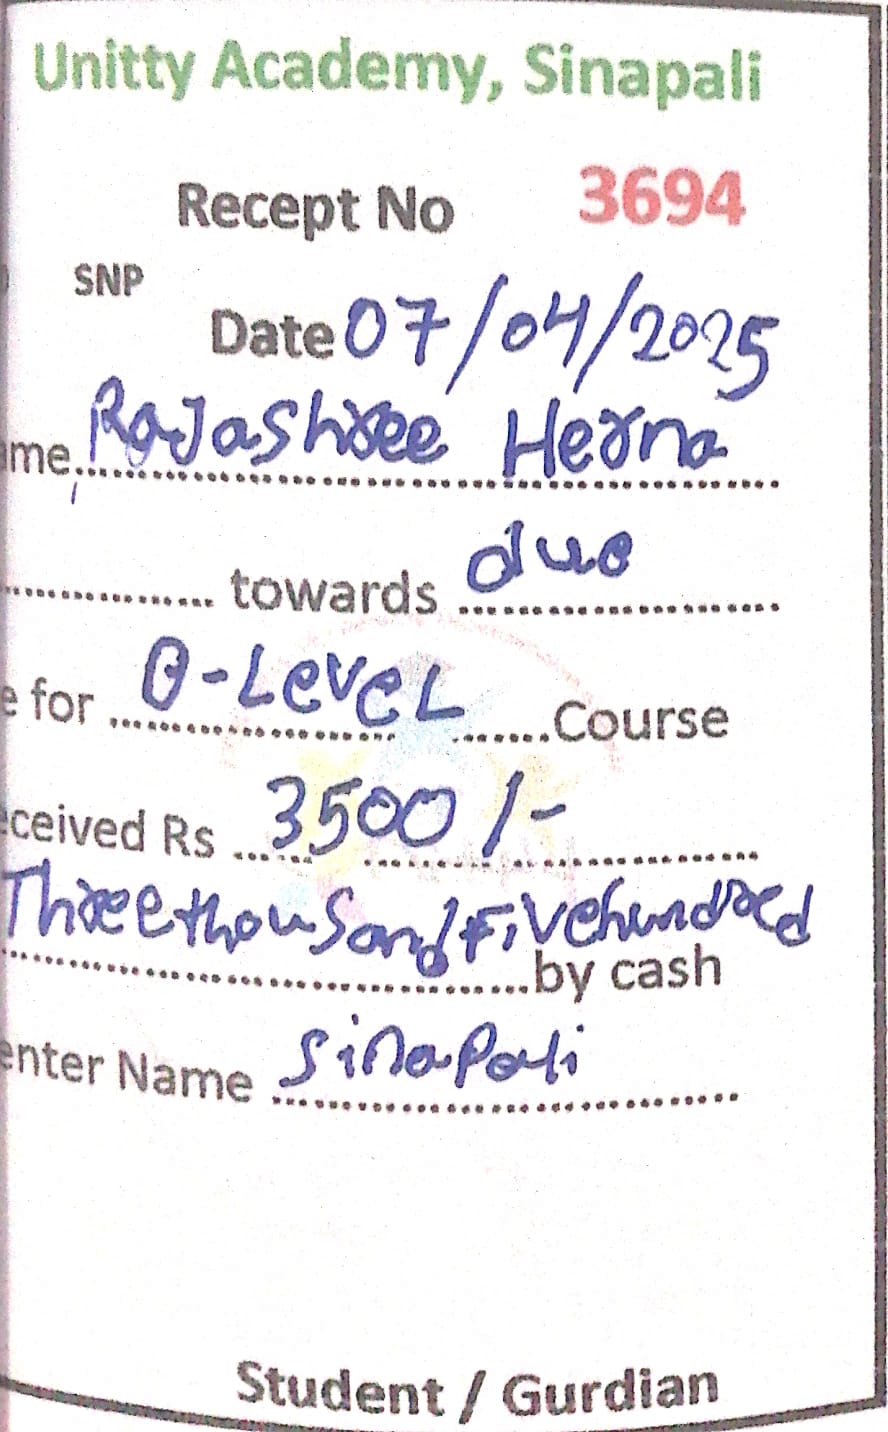 Unitty Academy, Sinapali
Recept No 3694
SNP
Date 07/04/2025
me. Rajashree Herna
towards due
e for O-Level Course
ceived Rs 3500/-
Threethousand Fivehundred
by cash
enter Name Sinapali
Student / Gurdian